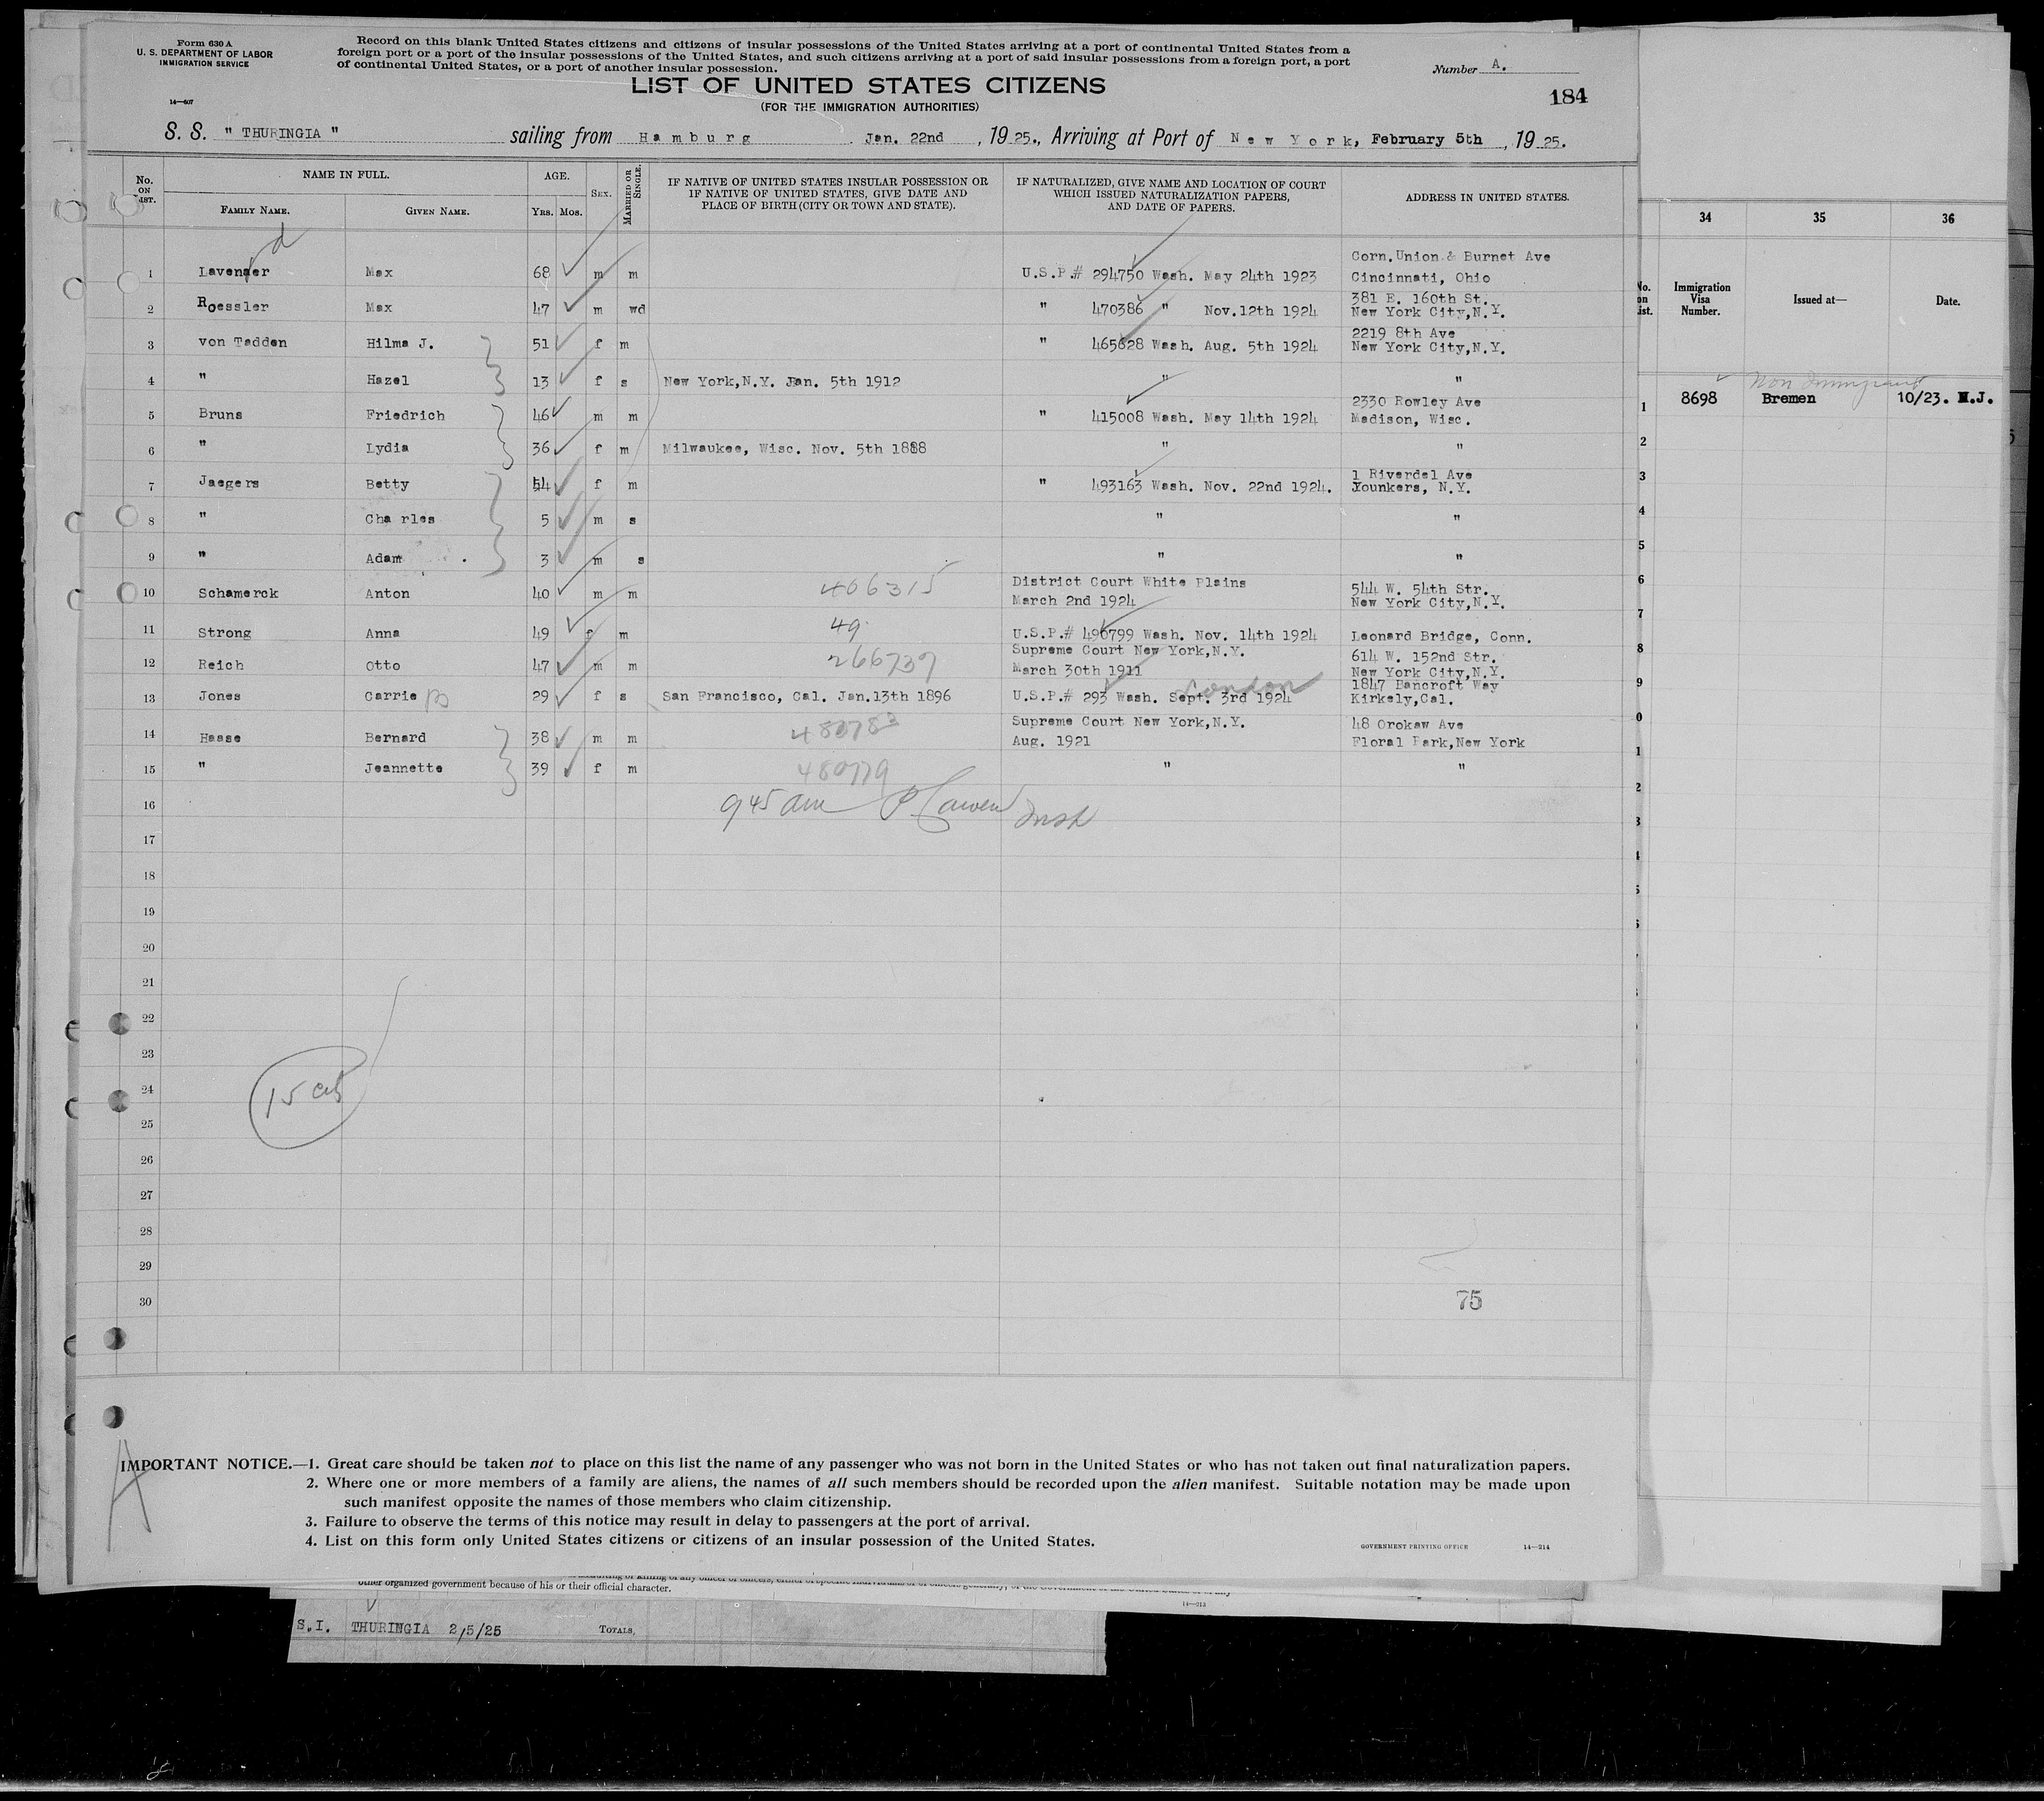 Form 630 A
U. S. DEPARTMENT OF LABOR
IMMIGRATION SERVICE
14—607
Record on this blank United States citizens and citizens of insular possessions of the United States arriving at a port of continental United States from a
foreign port or a port of the insular possessions of the United States, and such citizens arriving at a port of said insular possessions from a foreign port, a port
of continental United States, or a port of another insular possession.
Number A.
LIST OF UNITED STATES CITIZENS
(FOR THE IMMIGRATION AUTHORITIES)
184
S. S. " THURINGIA " sailing from Hamburg Jan. 22nd, 1925., Arriving at Port of New York, February 5th, 1925.
No. ON LIST. NAME IN FULL. AGE. SEX. MARRIED OR SINGLE. IF NATIVE OF UNITED STATES INSULAR POSSESSION OR IF NATIVE OF UNITED STATES, GIVE DATE AND PLACE OF BIRTH (CITY OR TOWN AND STATE). IF NATURALIZED, GIVE NAME AND LOCATION OF COURT WHICH ISSUED NATURALIZATION PAPERS, AND DATE OF PAPERS. ADDRESS IN UNITED STATES.
FAMILY NAME. GIVEN NAME. Yrs. Mos.
d
1 Lavender Max 68 m m U.S.P.# 294750 Wash. May 24th 1923 Corn.Union & Burnet Ave Cincinnati, Ohio
2 Roessler Max 47 m wd " 470386 " Nov.12th 1924 381 E. 160th St. New York City,N.Y.
3 von Tadden Hilma J. 51 f m " 465628 Wash. Aug. 5th 1924 2219 8th Ave New York City,N.Y.
4 " Hazel 13 f s New York,N.Y. Jan. 5th 1912 " "
5 Bruns Friedrich 46 m m " 415008 Wash. May 14th 1924 2330 Rowley Ave Madison, Wisc.
6 " Lydia 36 f m Milwaukee, Wisc. Nov. 5th 1888 " "
7 Jaegers Betty 54 f m " 493163 Wash. Nov. 22nd 1924. 1 Riverdel Ave Younkers, N.Y.
8 " Cha rles 5 m s " "
9 " Adam 3 m s " "
10 Schamerck Anton 40 m m 406315 District Court White Plains March 2nd 1924 544 W. 54th Str. New York City,N.Y.
11 Strong Anna 49 f m 49 U.S.P.# 490799 Wash. Nov. 14th 1924 Leonard Bridge, Conn.
12 Reich Otto 47 m m 266739 Supreme Court New York,N.Y. March 30th 1911 614 W. 152nd Str. New York City,N.Y.
13 Jones Carrie B 29 f s San Francisco, Cal. Jan.13th 1896 U.S.P.# 293 Wash. Sept. 3rd 1924 London 1847 Bancroft Way Kirkely,Cal.
14 Hasse Bernard 38 m m 480783 Supreme Court New York,N.Y. Aug. 1921 48 Orokaw Ave Floral Park,New York
15 " Jeannette 39 f m 480779 " "
16 945 am
17
18
19
20
21
22
23
24
25
26
27
28
29
30
15
75
A
IMPORTANT NOTICE.—1. Great care should be taken not to place on this list the name of any passenger who was not born in the United States or who has not taken out final naturalization papers.
2. Where one or more members of a family are aliens, the names of all such members should be recorded upon the alien manifest. Suitable notation may be made upon
such manifest opposite the names of those members who claim citizenship.
3. Failure to observe the terms of this notice may result in delay to passengers at the port of arrival.
4. List on this form only United States citizens or citizens of an insular possession of the United States.
GOVERNMENT PRINTING OFFICE 14—214
34 35 36
Immigration Visa Number. Issued at— Date.
Non Immigrant
1 8698 Bremen 10/23. N.J.
2
3
4
5
6
7
8
9
0
1
2
3
other organized government because of his or their official character.
14—213
S.I. THURINGIA 2/5/25 TOTALS,